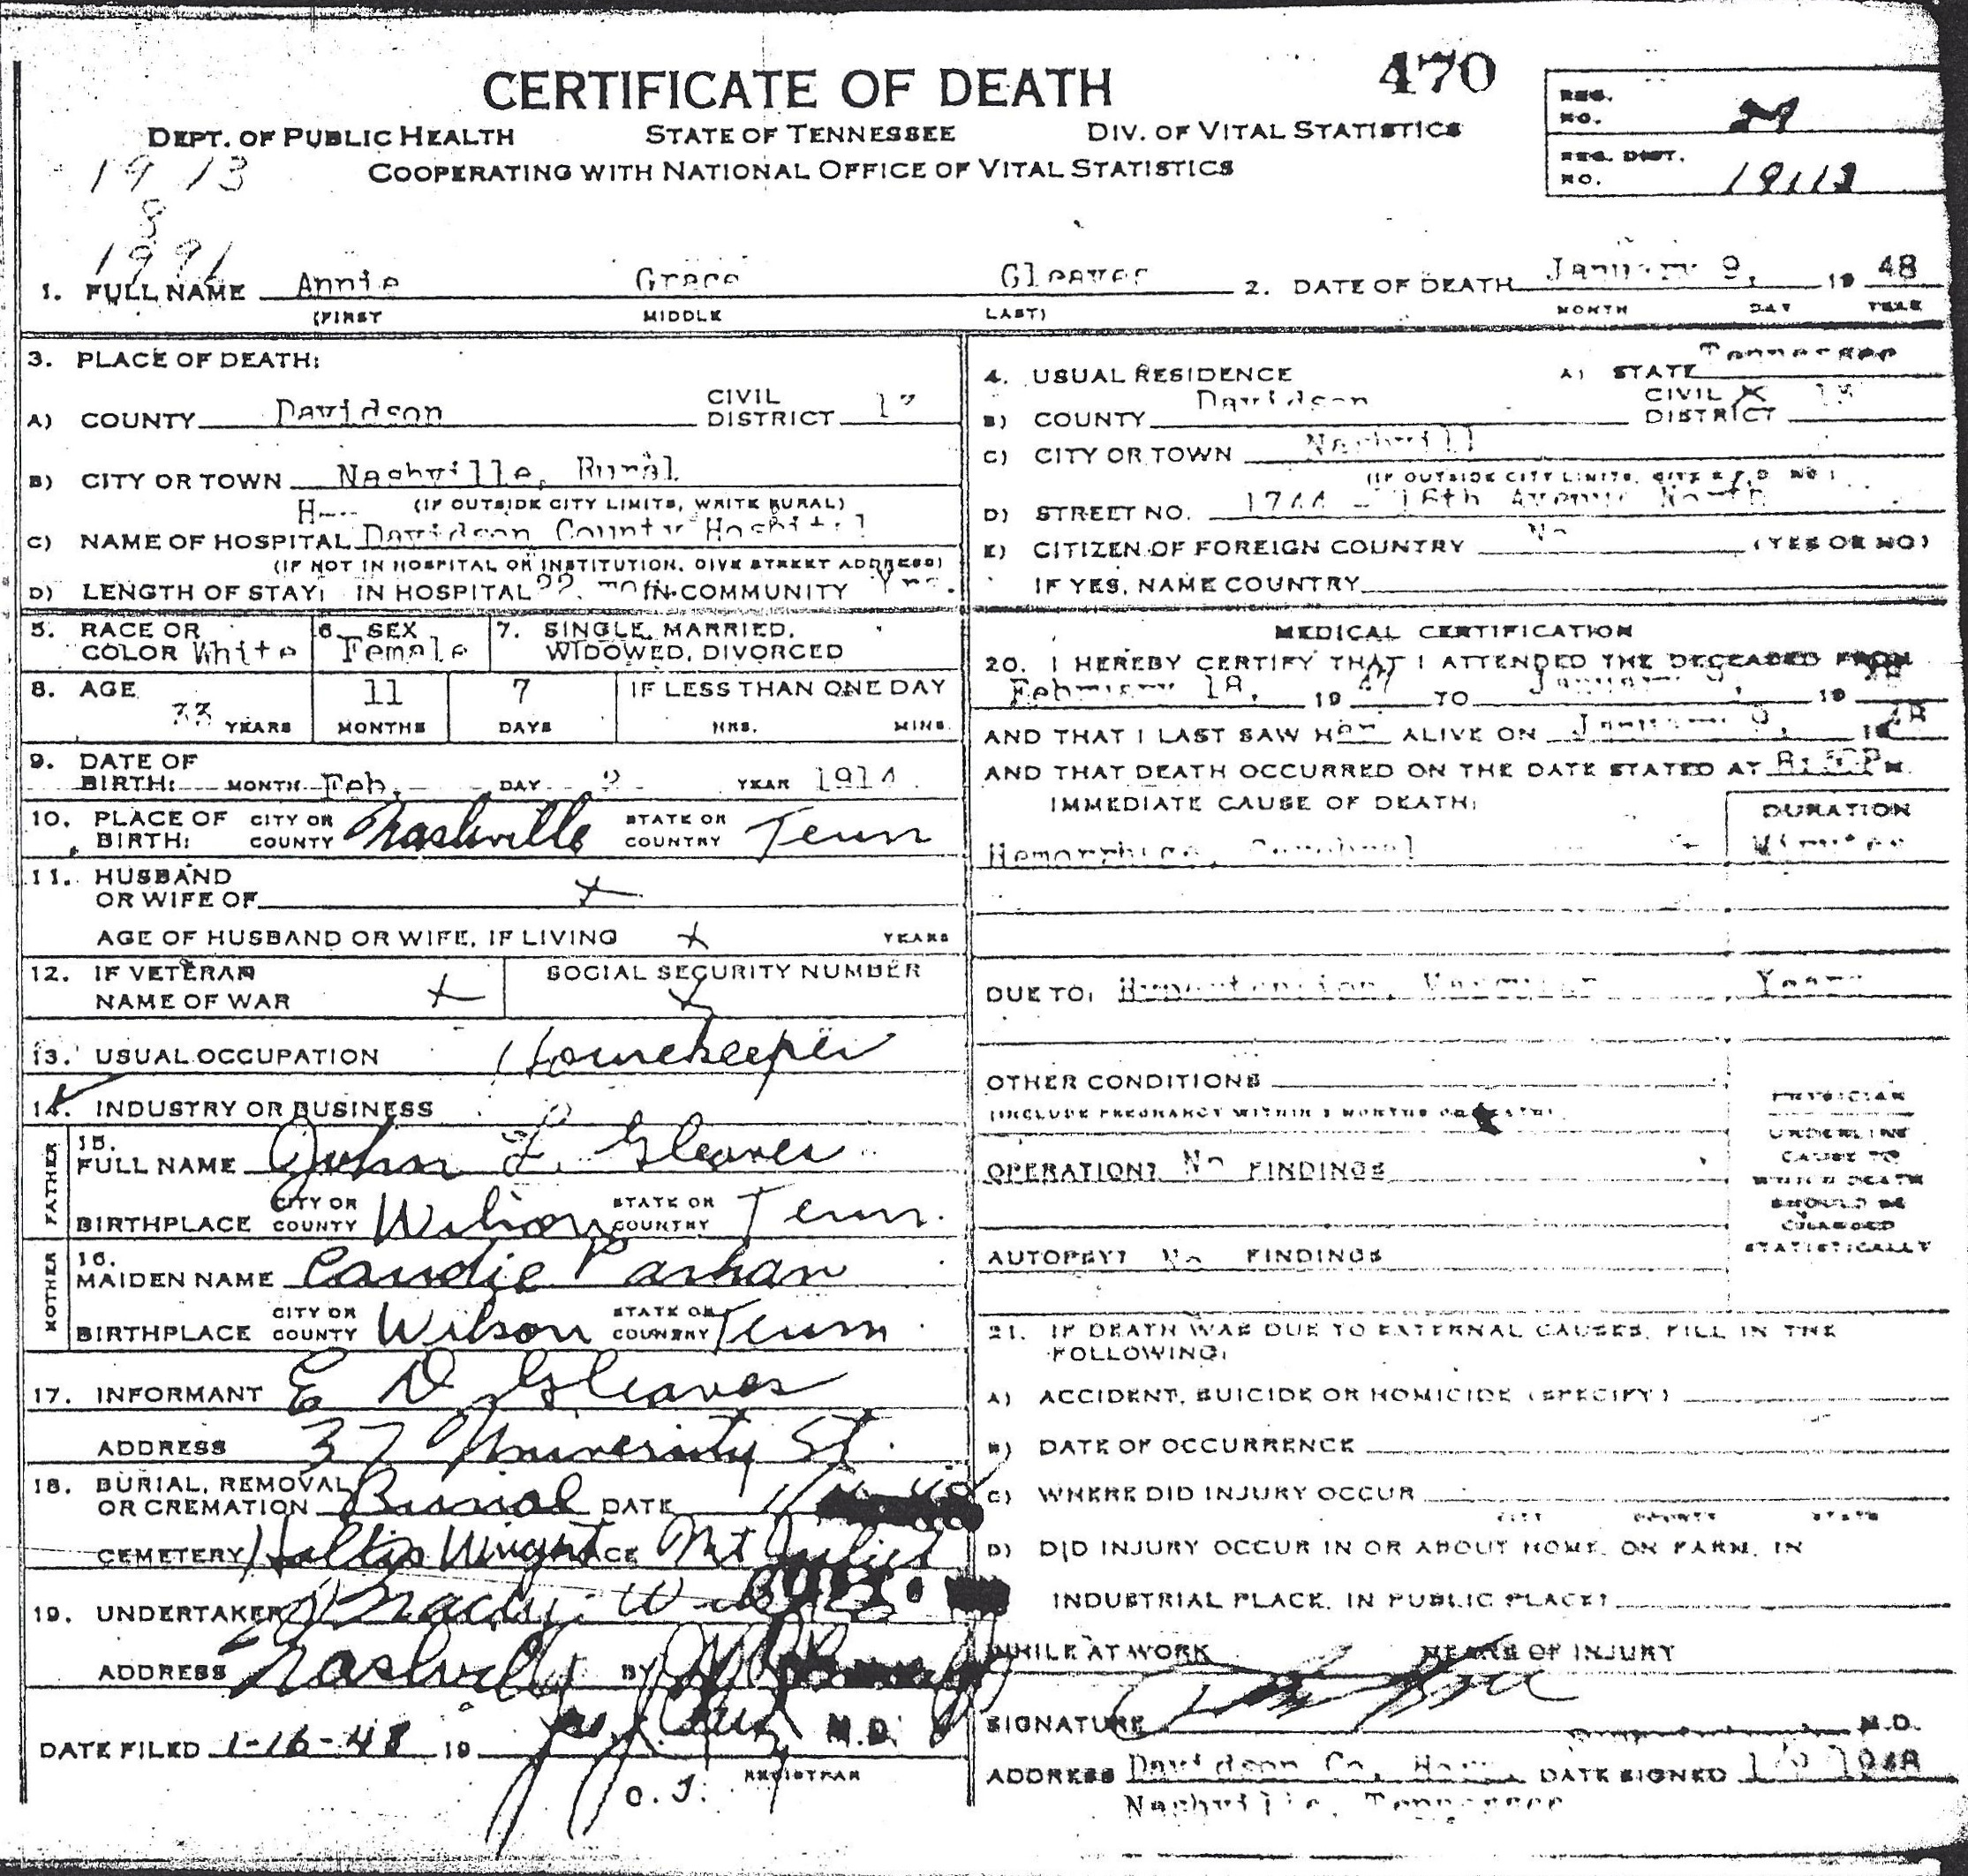 470
CERTIFICATE OF DEATH
DEPT. OF PUBLIC HEALTH STATE OF TENNESSEE DIV. OF VITAL STATISTICS
COOPERATING WITH NATIONAL OFFICE OF VITAL STATISTICS
REG. NO.
REG. DIST. NO.
19 13
8
1. FULL NAME Annie Grace Gleaves 2. DATE OF DEATH January 9, 19 48
(FIRST MIDDLE LAST) MONTH DAY YEAR
3. PLACE OF DEATH:
A) COUNTY Davidson CIVIL DISTRICT
B) CITY OR TOWN Nashville, Rural
(IF OUTSIDE CITY LIMITS, WRITE RURAL)
C) NAME OF HOSPITAL Davidson County Hospital
(IF NOT IN HOSPITAL OR INSTITUTION, GIVE STREET ADDRESS)
D) LENGTH OF STAY: IN HOSPITAL 22 mo IN COMMUNITY Yrs.
4. USUAL RESIDENCE A) STATE Tennessee
B) COUNTY Davidson CIVIL DISTRICT
C) CITY OR TOWN Nashvill
(IF OUTSIDE CITY LIMITS, GIVE R.F.D. NO.)
D) STREET NO. 1744 - 16th Avenue North
E) CITIZEN OF FOREIGN COUNTRY No (YES OR NO)
IF YES, NAME COUNTRY
5. RACE OR COLOR White 6. SEX Female 7. SINGLE, MARRIED, WIDOWED, DIVORCED
8. AGE 33 YEARS 11 MONTHS 7 DAYS IF LESS THAN ONE DAY HRS. MINS.
9. DATE OF BIRTH: MONTH Feb. DAY 2 YEAR 1914
10. PLACE OF BIRTH: CITY OR COUNTY Nashville STATE OR COUNTRY Tenn
11. HUSBAND OR WIFE OF x
AGE OF HUSBAND OR WIFE, IF LIVING x YEARS
12. IF VETERAN NAME OF WAR x SOCIAL SECURITY NUMBER x
13. USUAL OCCUPATION Housekeeper
14. INDUSTRY OR BUSINESS
FATHER
15. FULL NAME John L. Gleaves
BIRTHPLACE CITY OR COUNTY Wilson STATE OR COUNTRY Tenn.
MOTHER
16. MAIDEN NAME Candie Parhan
BIRTHPLACE CITY OR COUNTY Wilson STATE OR COUNTRY Tenn
17. INFORMANT E D Gleaves
ADDRESS 37 University St.
18. BURIAL, REMOVAL OR CREMATION Burial DATE
CEMETERY Wright PLACE Mt Juliet
19. UNDERTAKER
ADDRESS Nashville BY
DATE FILED 1-16-48 19 M.D.
REGISTRAR
O. J.
MEDICAL CERTIFICATION
20. I HEREBY CERTIFY THAT I ATTENDED THE DECEASED FROM
February 18, 19 47 TO January 9, 19 48
AND THAT I LAST SAW HER ALIVE ON January 9, 19 48
AND THAT DEATH OCCURRED ON THE DATE STATED AT M.
IMMEDIATE CAUSE OF DEATH: DURATION
Hemorrhage, Cerebral Minutes
DUE TO: Hypertension, Vascular Years
OTHER CONDITIONS
(INCLUDE PREGNANCY WITHIN 3 MONTHS OF DEATH)
OPERATION? No FINDINGS
AUTOPSY? No FINDINGS
PHYSICIAN
UNDERLINE
CAUSE TO
WHICH DEATH
SHOULD BE
CHARGED
STATISTICALLY
21. IF DEATH WAS DUE TO EXTERNAL CAUSES, FILL IN THE
FOLLOWING:
A) ACCIDENT, SUICIDE OR HOMICIDE (SPECIFY)
B) DATE OF OCCURRENCE
C) WHERE DID INJURY OCCUR
CITY COUNTY STATE
D) DID INJURY OCCUR IN OR ABOUT HOME, ON FARM, IN
INDUSTRIAL PLACE, IN PUBLIC PLACE?
WHILE AT WORK MEANS OF INJURY
SIGNATURE M.D.
ADDRESS Davidson Co. Hosp. DATE SIGNED 1/9 1948
Nashville, Tennessee